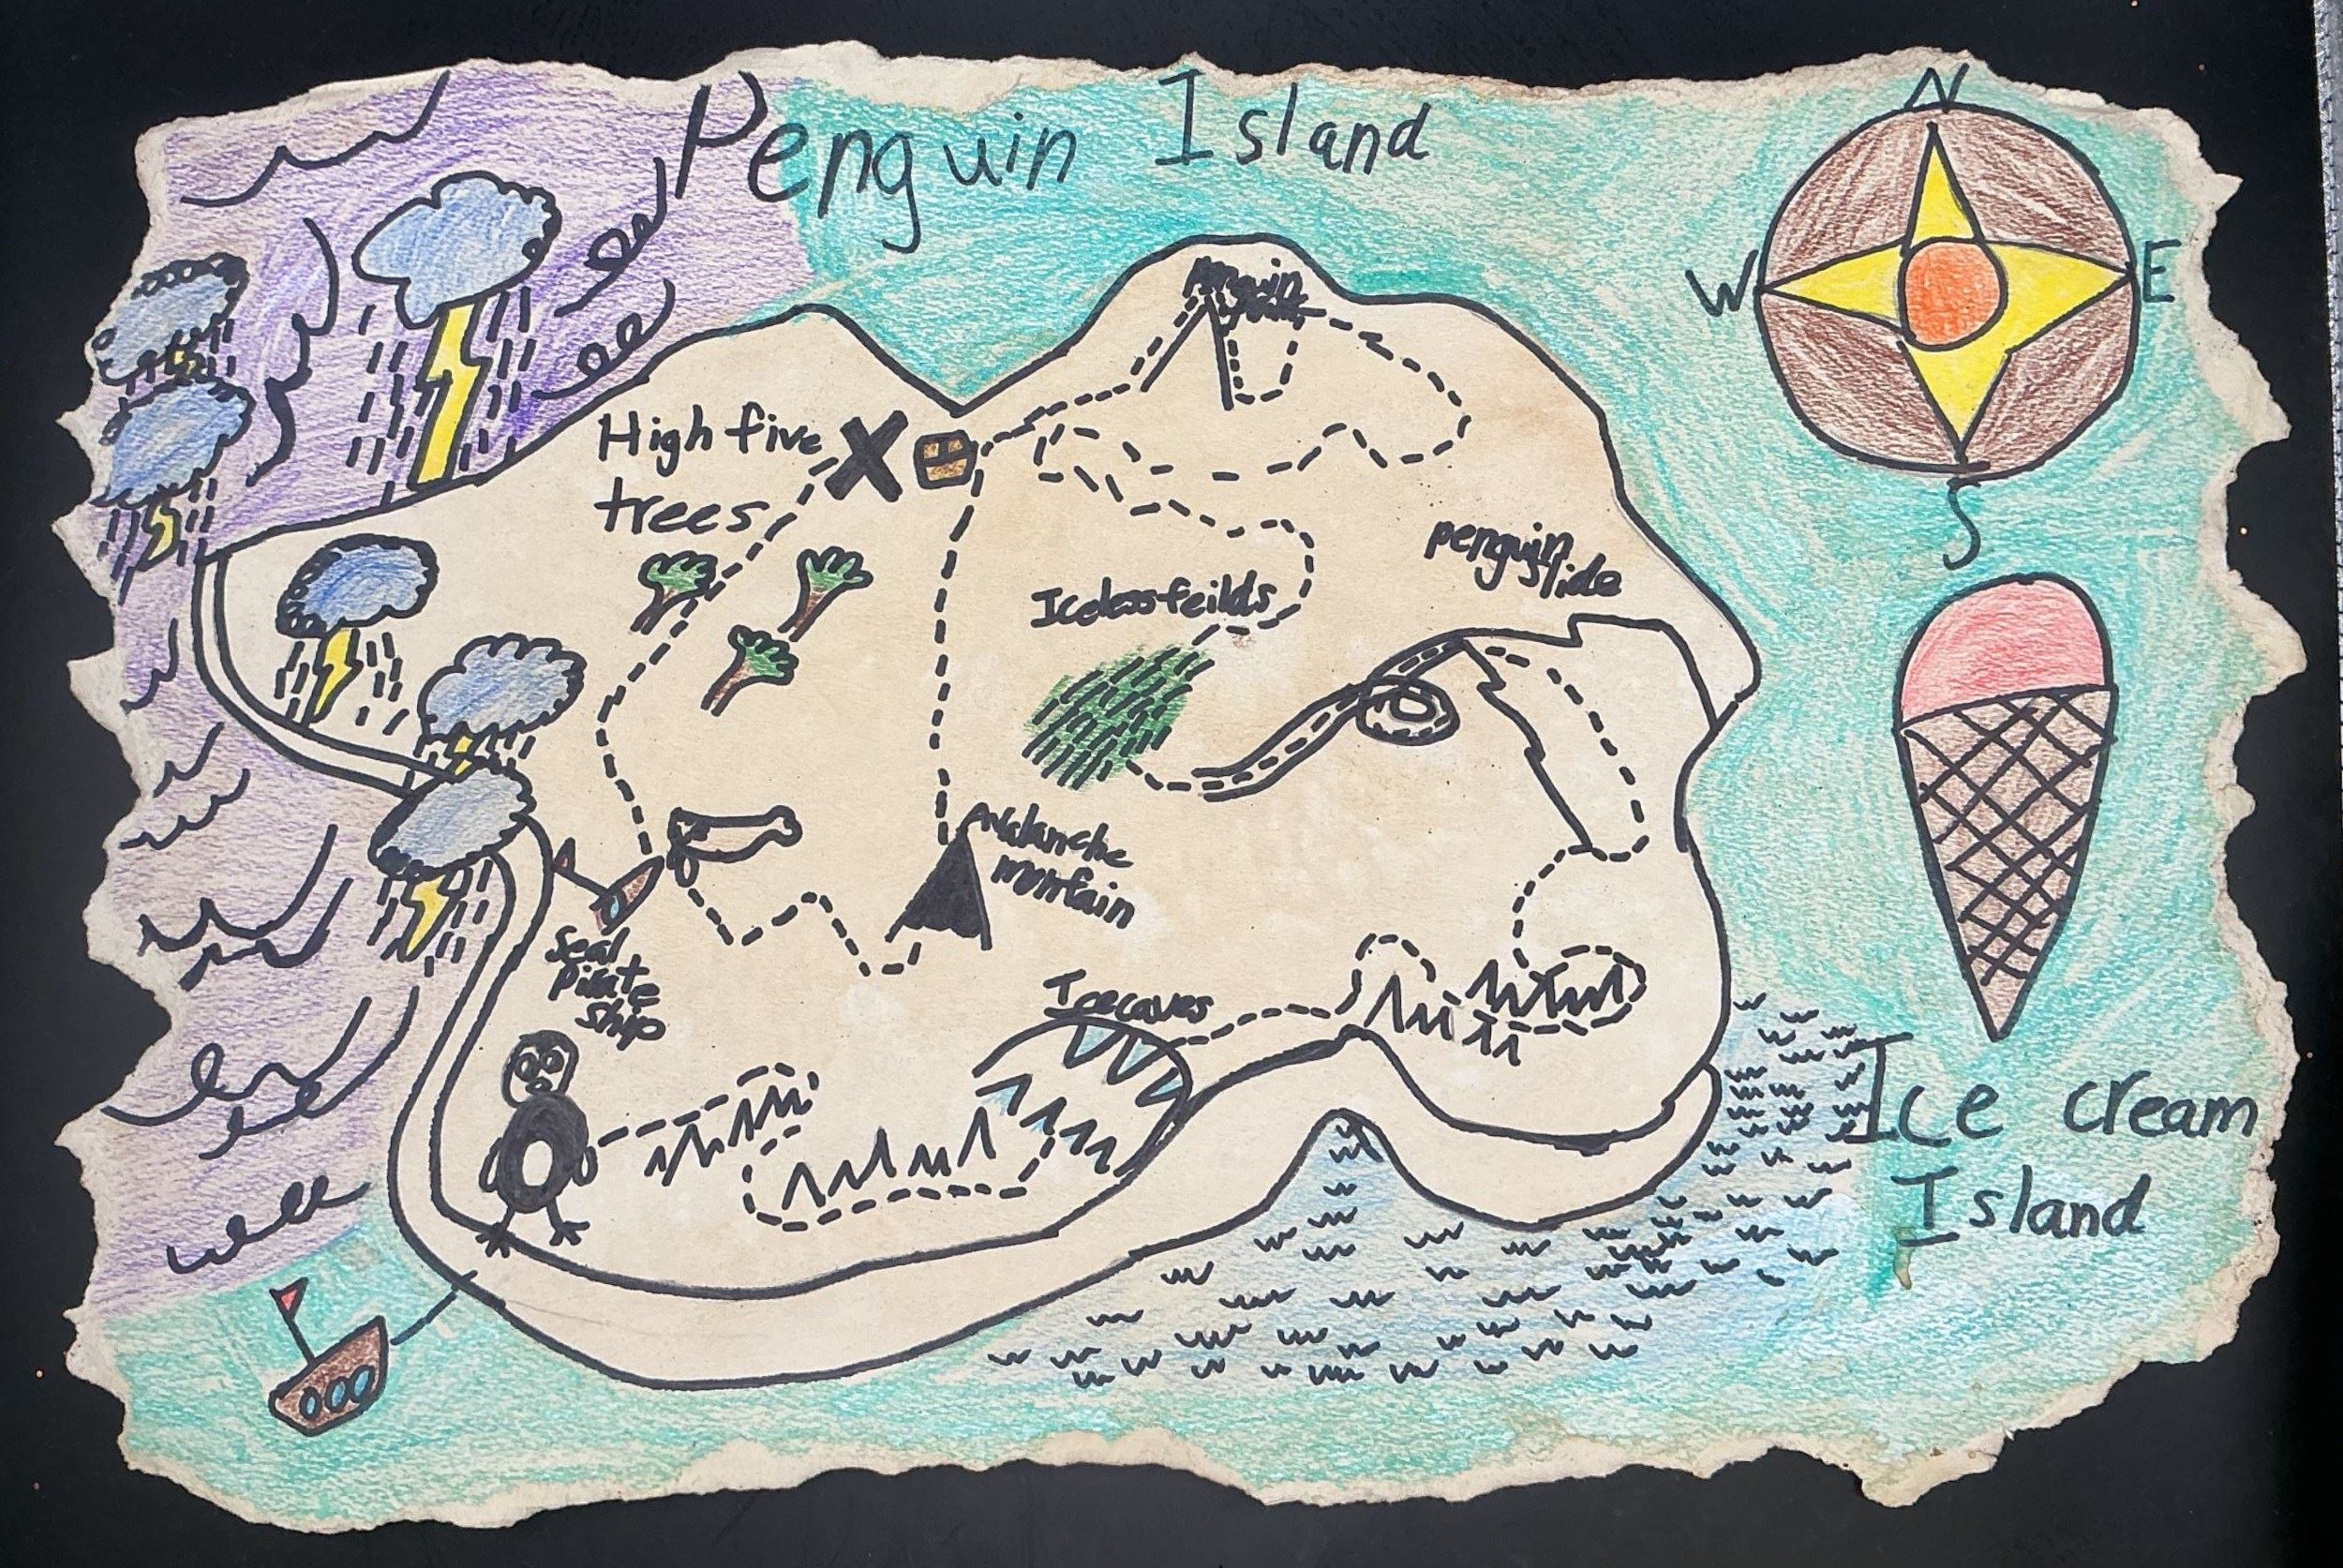 Penguin Island
N
W
E
S
Penguin
High five
trees
penguin
slide
Iceless feilds
Avalanche
mountain
Seal
Pirate
Ship
Icecaves
Ice cream
Island